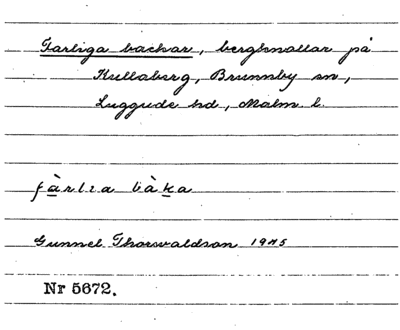 Farliga backar, bergknallar på
Kullaberg, Brunnby sn,
Luggude hd, Malm. l.
fàrlıa bàka
Gunnel Thorwaldson 1945
Nr 5672.